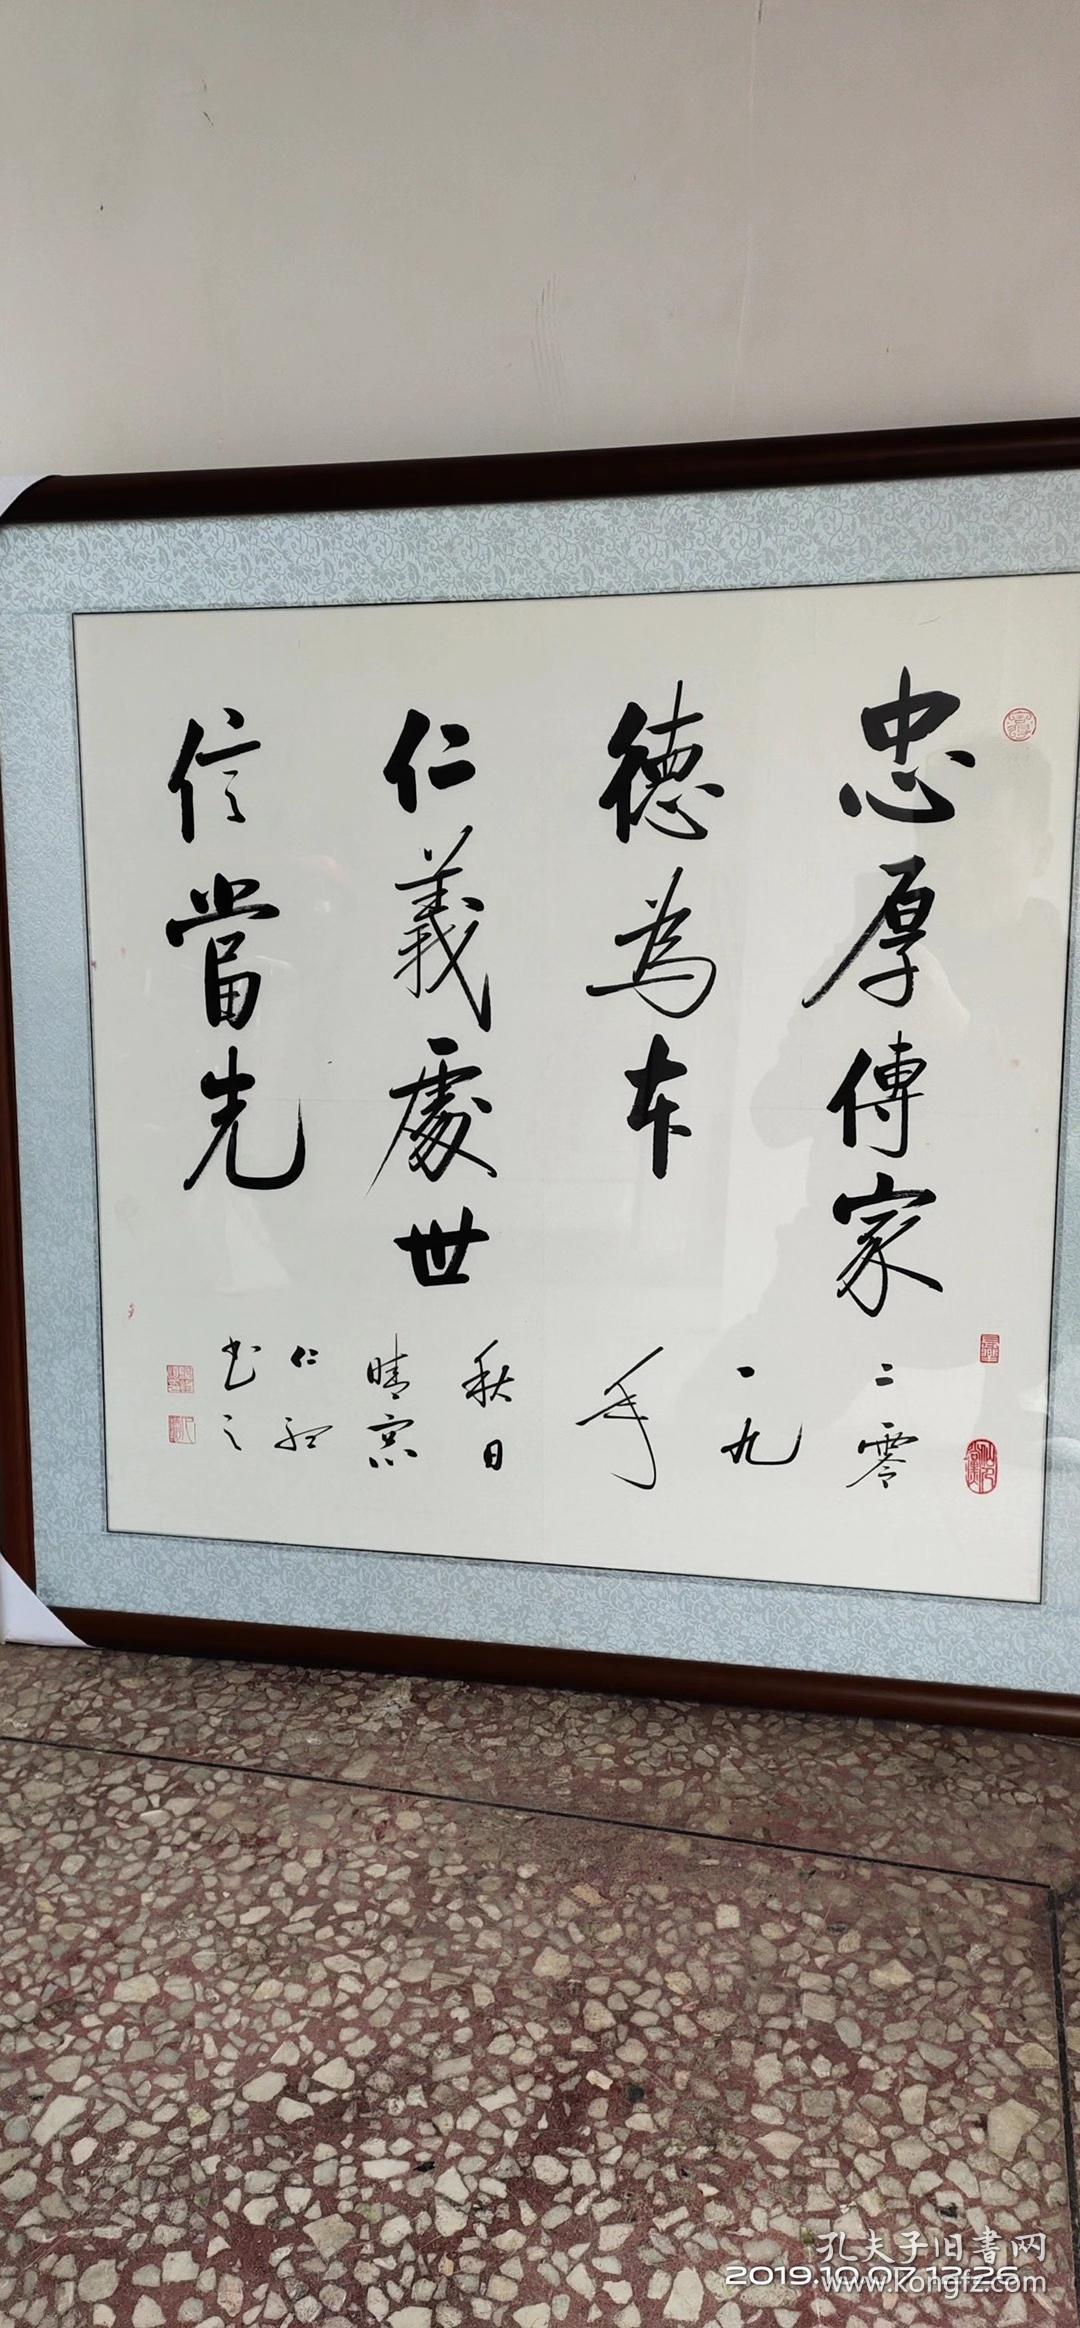 忠厚傳家
德為本
仁義處世
信當先
二零
一九
年
秋日
晴窓
仁
书之
孔夫子旧書网
2019.10.07 12:26
www.kongfz.com